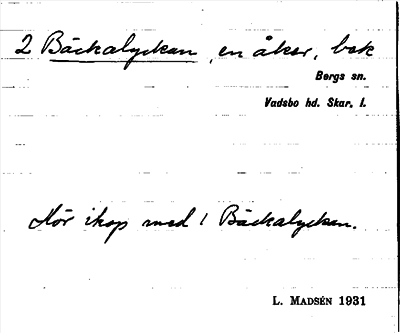 2 Bäckalyckan, en åker, bek
Bergs sn.
Vadsbo hd. Skar. l.
Hör ihop med 1 Bäckalyckan.
L. MADSÉN 1931